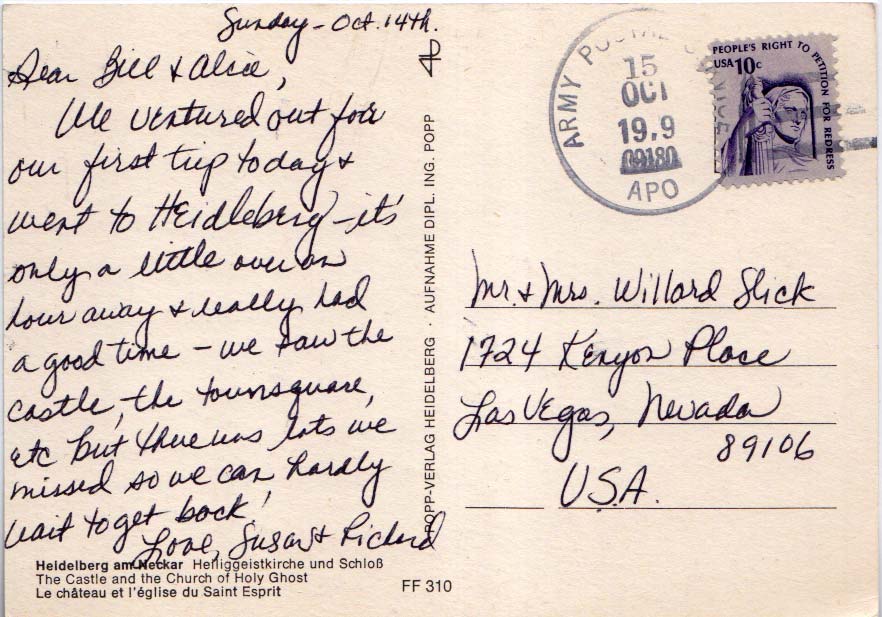 Sunday - Oct. 14th.
Dear Bill & Alice,
We ventured out for
our first trip today &
went to Heidleberg - it's
only a little over an
hour away & really had
a good time - we saw the
castle, the townsquare,
etc but there was lots we
missed so we can hardly
wait to get back!
Love, Susan & Richard
Heidelberg am Neckar Heiliggeistkirche und Schloß
The Castle and the Church of Holy Ghost
Le château et l'église du Saint Esprit
FF 310
POPP-VERLAG HEIDELBERG · AUFNAHME DIPL. ING. POPP
ARMY POSTAL SERVICE
15
OCT
19.9
09180
APO
PEOPLE'S RIGHT TO PETITION FOR REDRESS
USA 10c
Mr. & Mrs. Willard Slick
1724 Kenyon Place
Las Vegas, Nevada
89106
U.S.A.